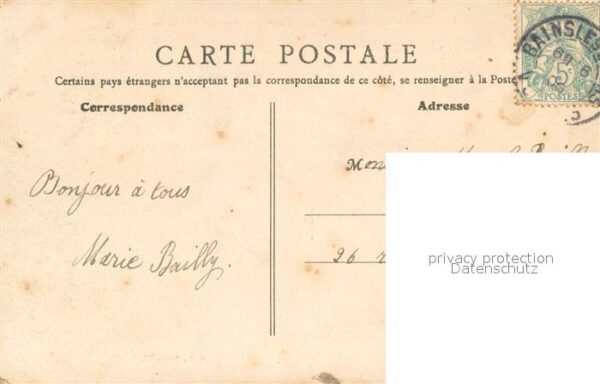 CARTE POSTALE
Certains pays étrangers n'acceptant pas la correspondance de ce côté, se renseigner à la Poste
Correspondance
Adresse
Bonjour à tous
Marie Bailly.
96
privacy protection
Datenschutz
POSTES